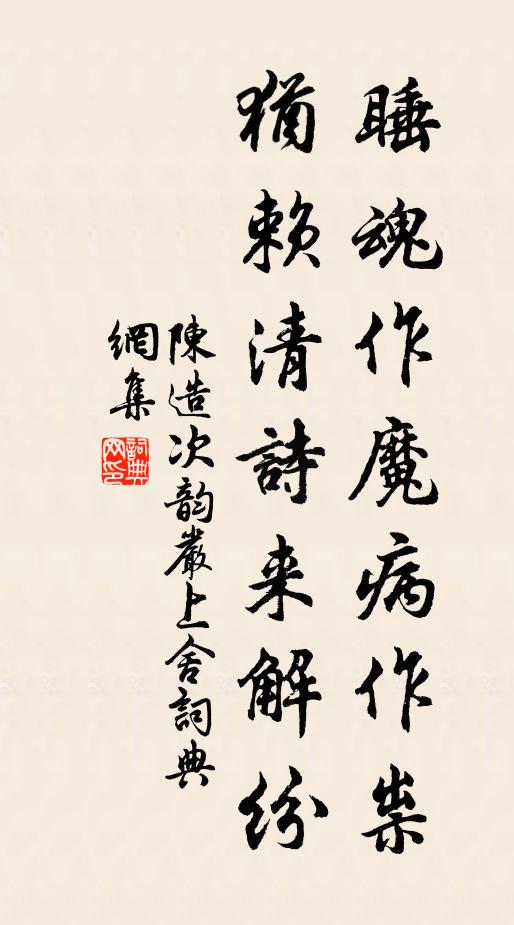 睡魂作魔病作祟
猶賴清詩来解紛
陳造次韵嚴上舍詞典
網集
詞典
网印